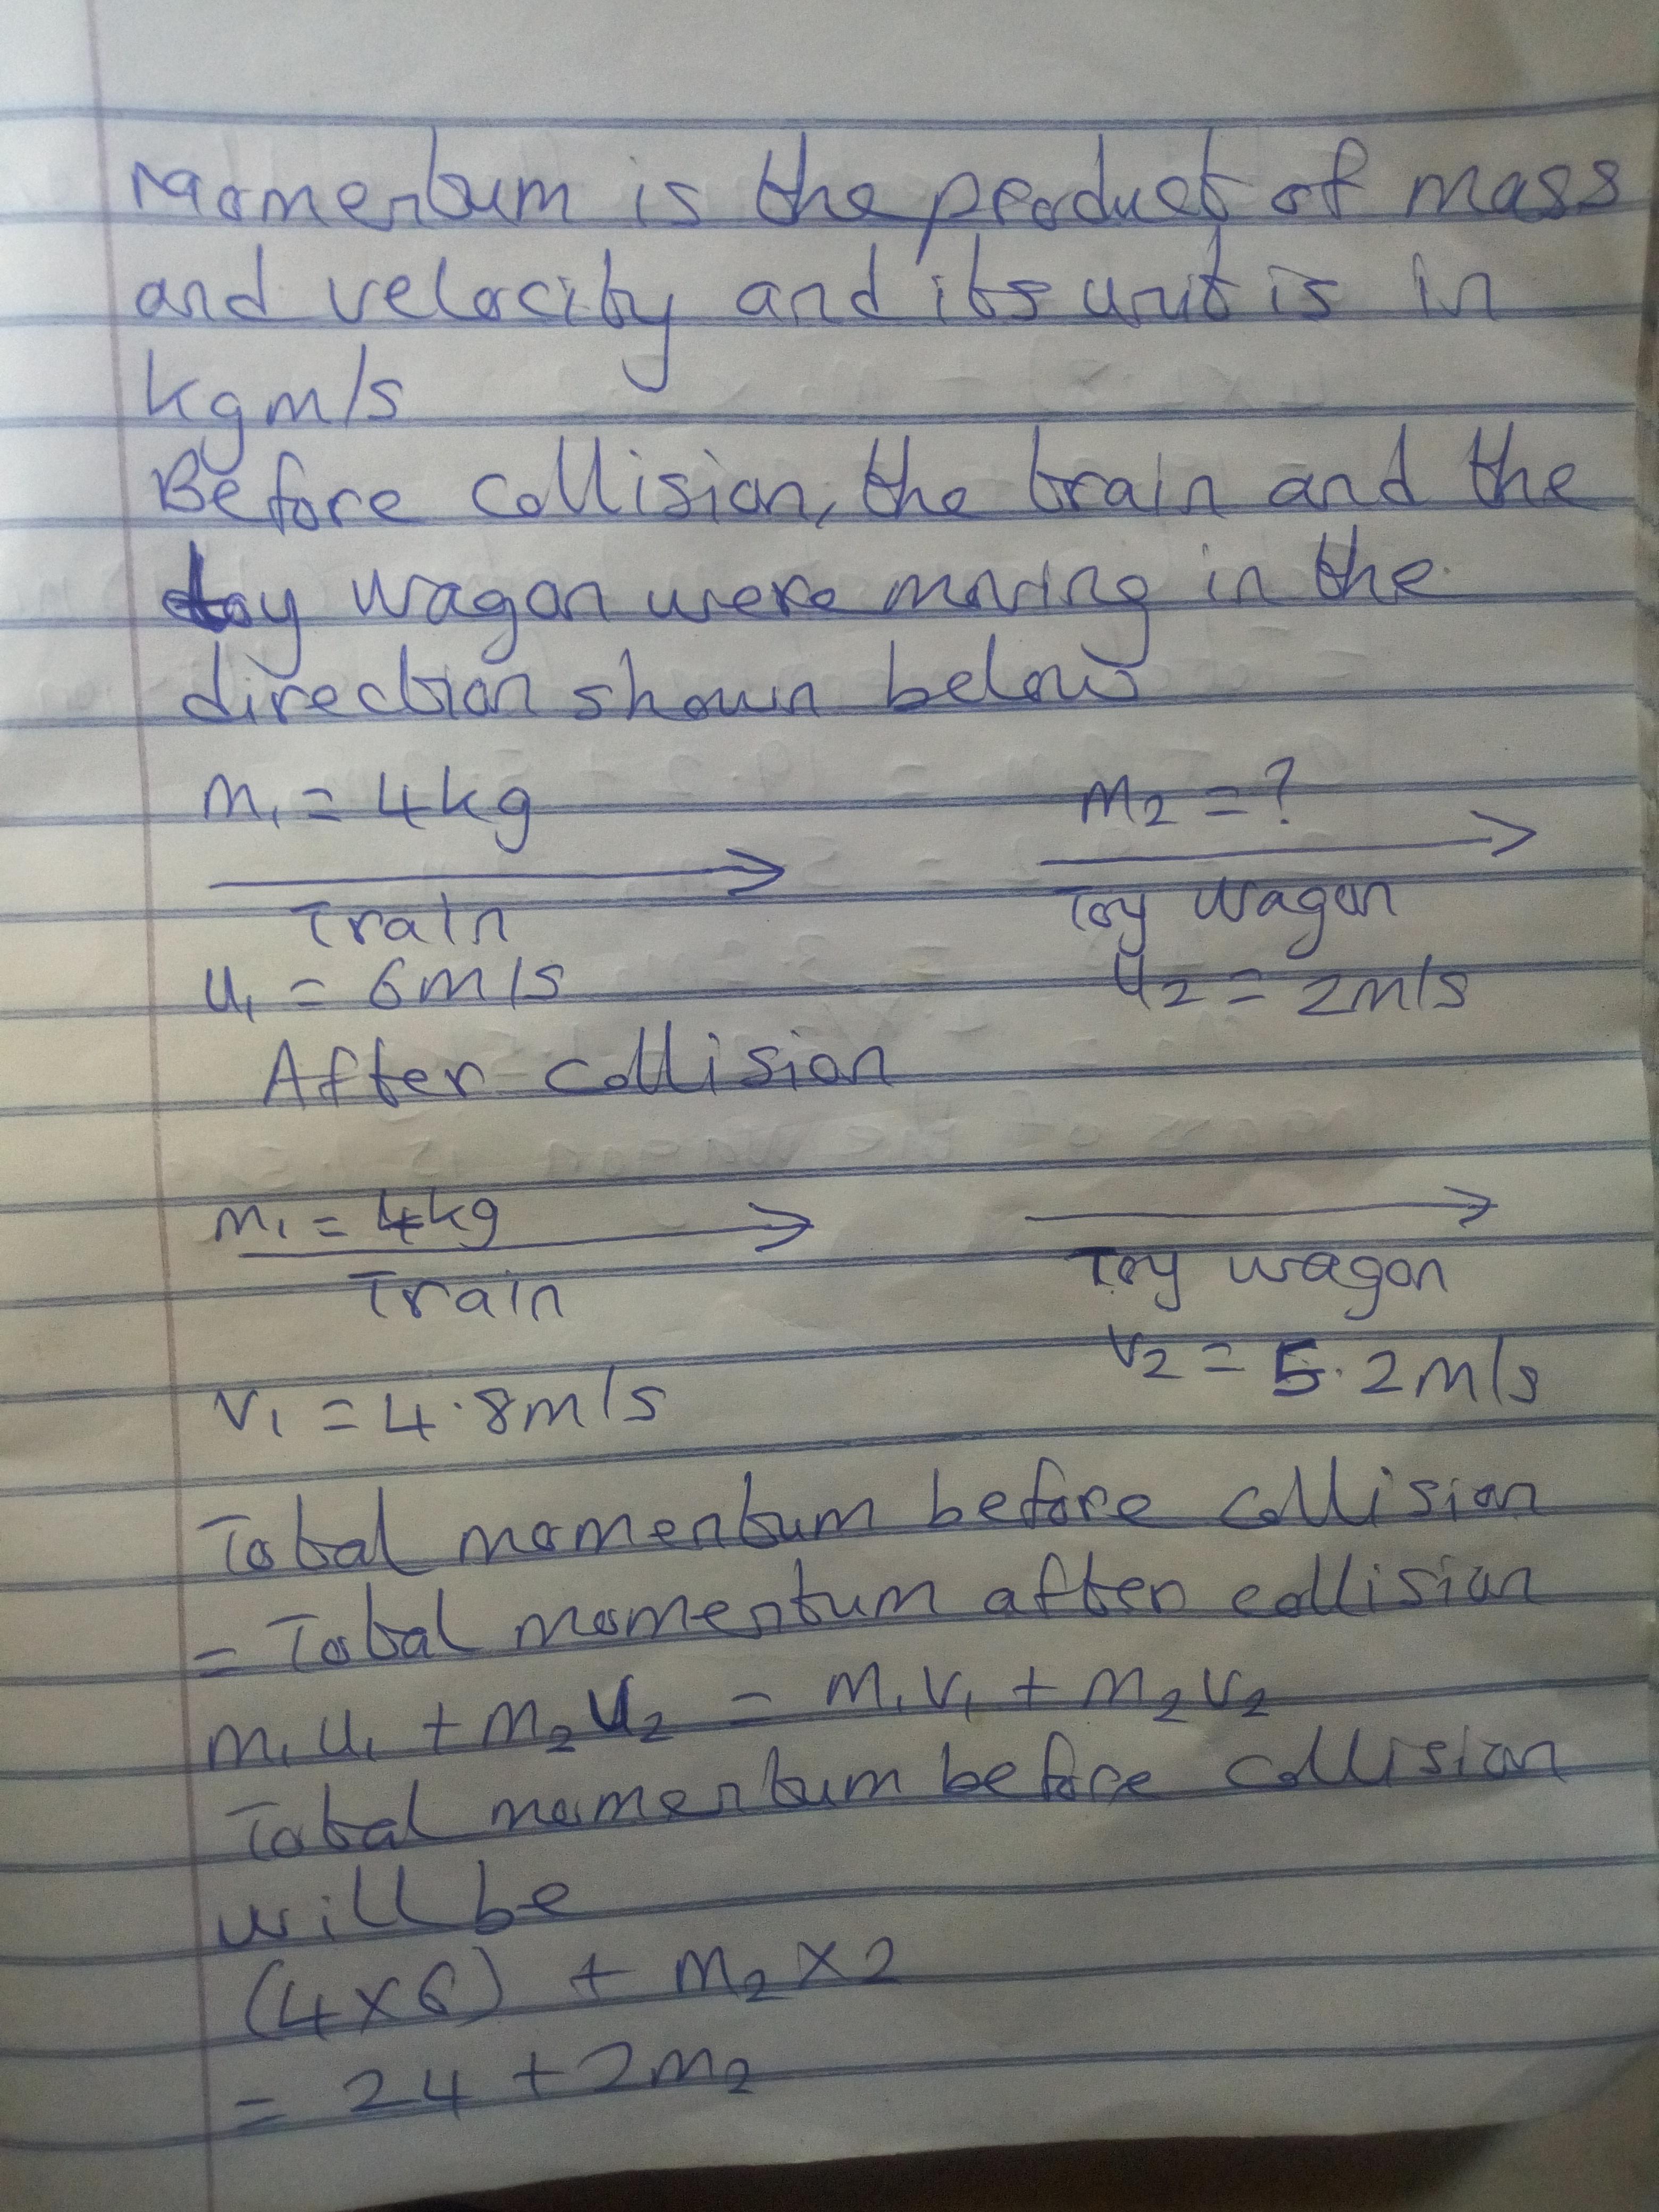 Momentum is the product of mass
and velocity and its unit is in
kgm/s
Before collision, the train and the
toy wagon were moving in the
direction shown below
m₁ = 4kg m₂ = ?
Train Toy wagon
u₁ = 6m/s u₂ = 2m/s
After collision
m₁ = 4kg
Train Toy wagon
v₁ = 4.8m/s v₂ = 5.2m/s
Total momentum before collision
= Total momentum after collision
m₁u₁ + m₂u₂ = m₁v₁ + m₂v₂
Total momentum before collision
will be
(4×6) + m₂×2
= 24 + 2m₂